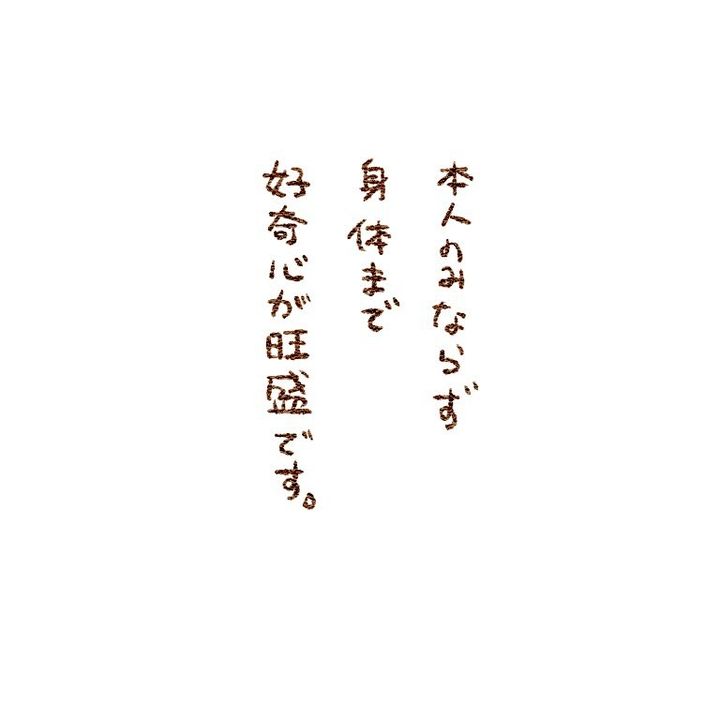 本人のみならず
身体まで
好奇心が旺盛です。